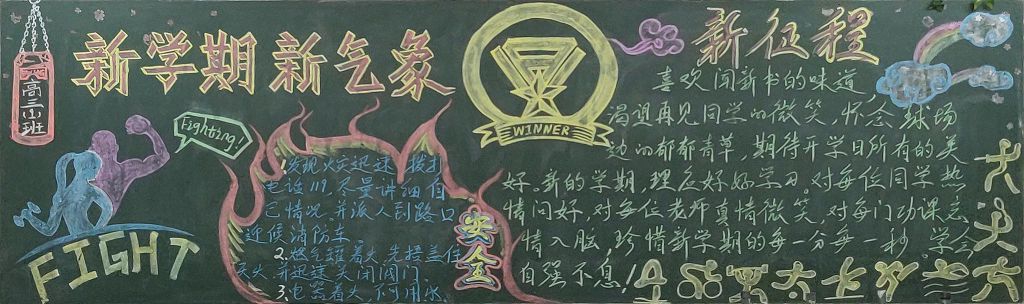 高三
班
新学期 新气象
Fighting!
FIGHT
1.发现火灾迅速拨打
电话119.尽量讲细自
己情况,并派人到路口
迎候消防车.
2.燃气罐着火,先捂盖住
灭火,并迅速关闭阀门.
3.电器着火,不可用水.
安全
WINNER
新征程
喜欢闻新书的味道
渴望再见同学的微笑,怀念球场
边的郁郁青草,期待开学日所有的美
好。新的学期,理应好好学习.对每位同学热
情问好,对每位老师真情微笑,对每门功课忘
情入脑,珍惜新学期的每一分每一秒。学会
自强不息!